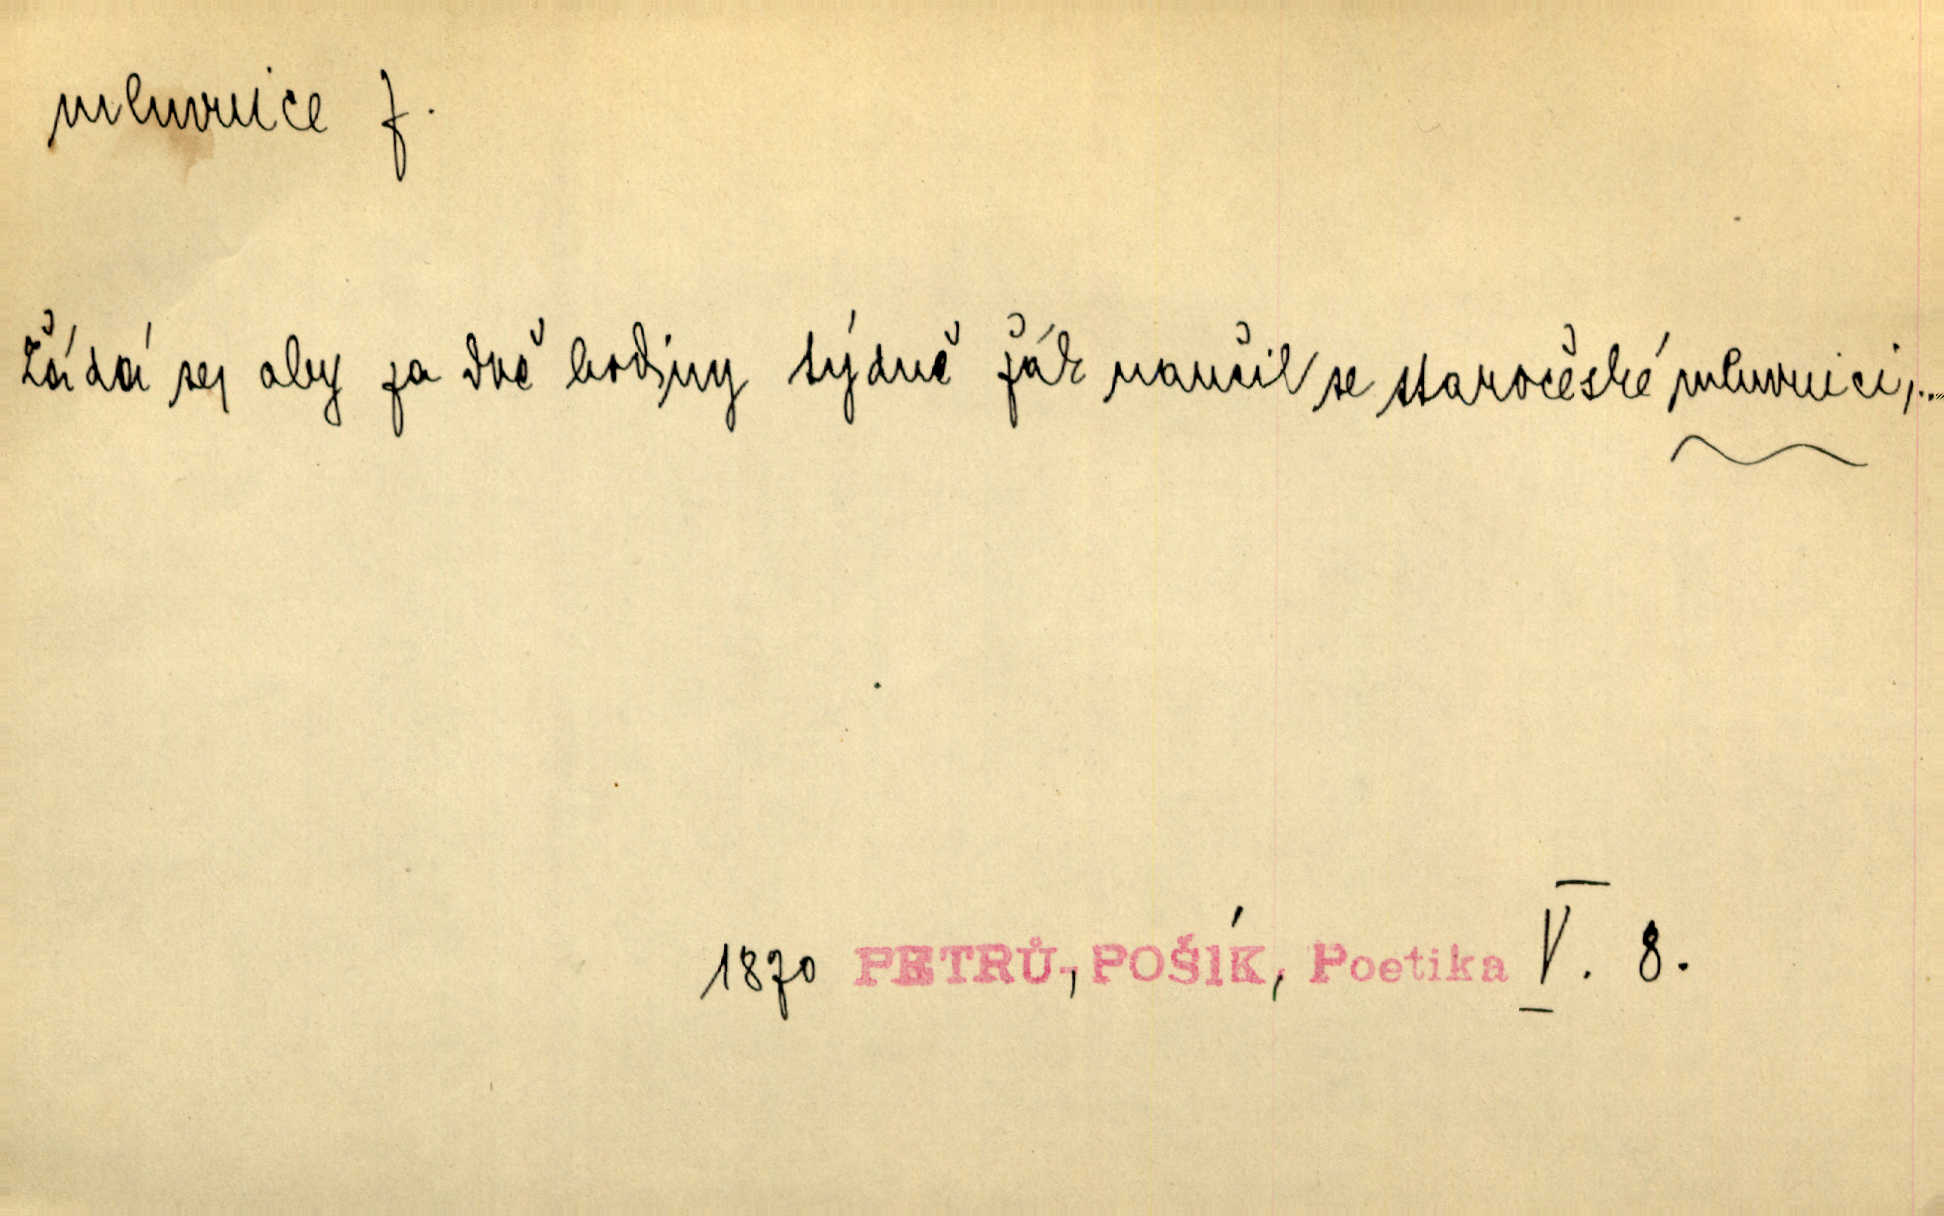 mluvnice f.
Žádá se, aby za dvě hodiny týdně žák naučil se staročeské mluvnici,...
1870 PETRŮ, POŠÍK, Poetika V. 8.